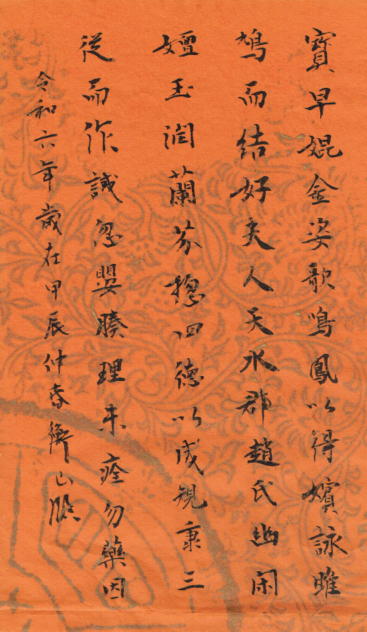 寶早媲金姿歌鳴鳳以得嬪詠雎
鳩而結好夫人天水郡趙氏幽閑
嬗玉潤蘭芬總四德以成規秉三
從而作誡忽嬰腠理未痊勿藥因
令和六年歲在甲辰仲春衡山臨